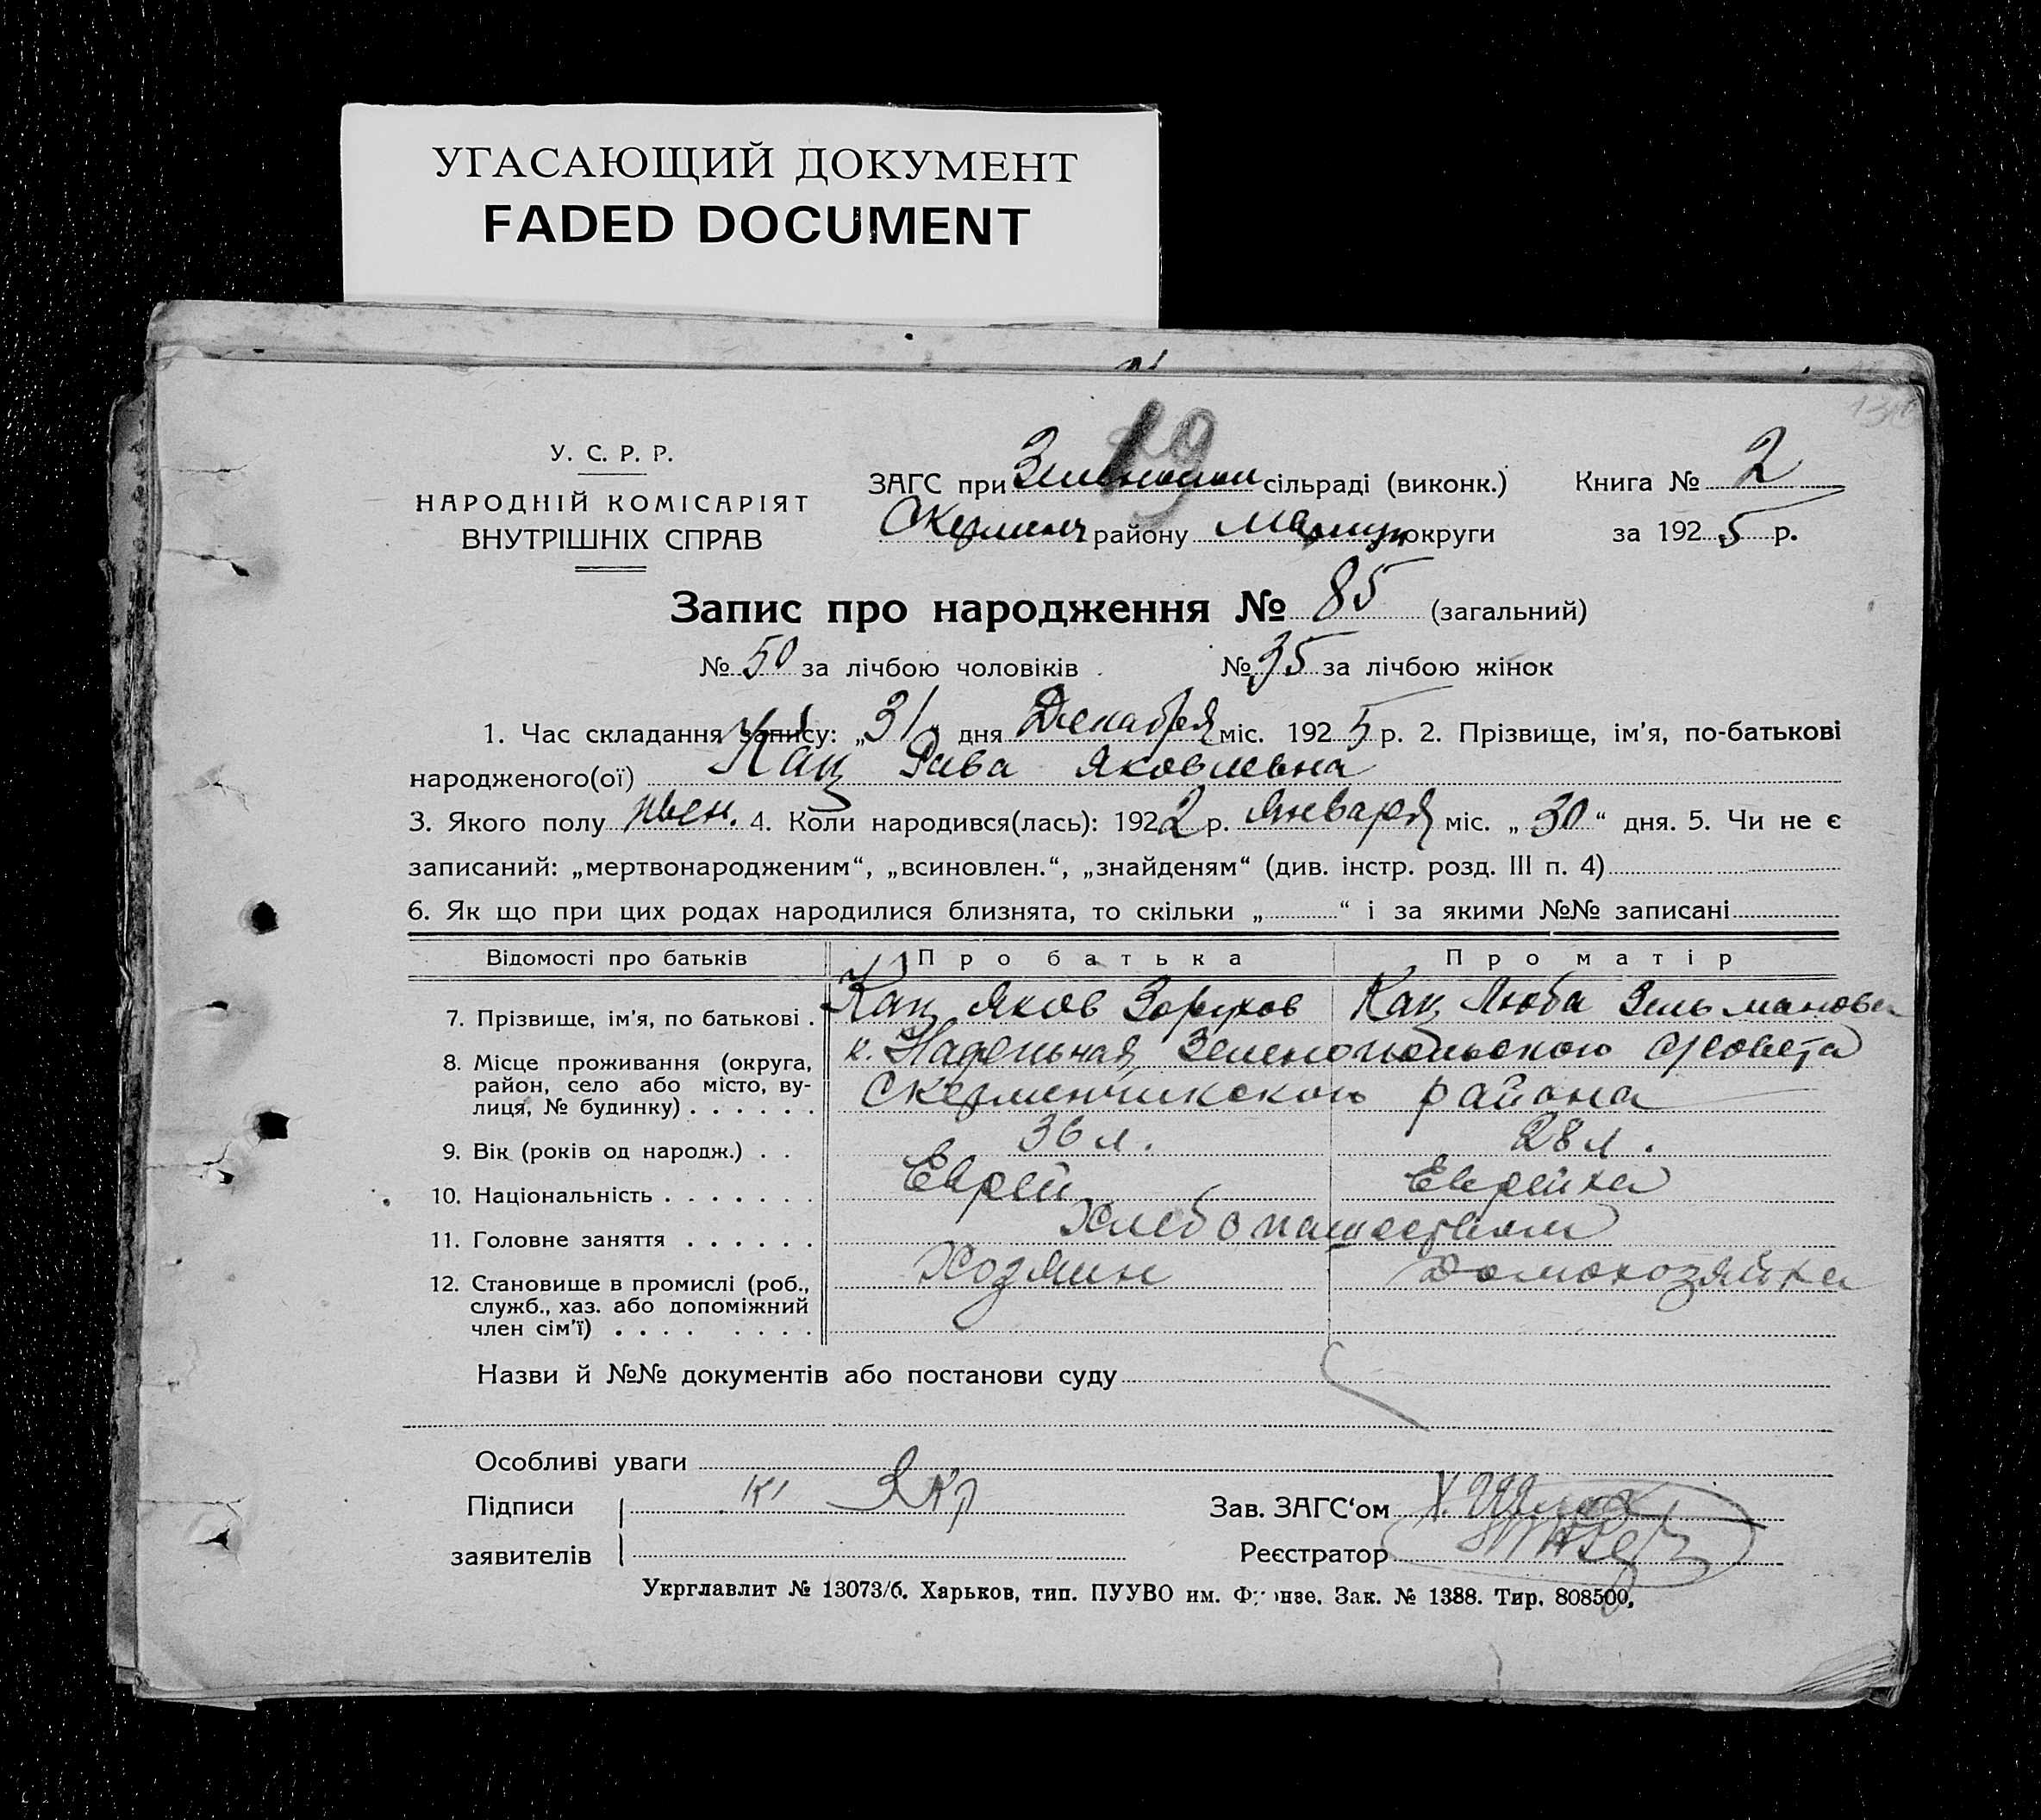 УГАСАЮЩИЙ ДОКУМЕНТ
FADED DOCUMENT
19
У. С. Р. Р.
НАРОДНІЙ КОМІСАРІЯТ
ВНУТРІШНІХ СПРАВ
ЗАГС при сільраді (виконк.) Книга № 2
району округи за 192 5 р.
Запис про народження № 85 (загальний)
№ 50 за лічбою чоловіків № 35 за лічбою жінок
1. Час складання запису: „31" дня Декабря міс. 192 5 р. 2. Прізвище, ім'я, по-батькові
народженого(ої) Кац Рива Яковлевна
3. Якого полу жен. 4. Коли народився(лась): 192 2 р. Января міс. „30" дня. 5. Чи не є
записаний: „мертвонародженим", „всиновлен.", „знайденям" (див. інстр. розд. III п. 4)
6. Як що при цих родах народилися близнята, то скільки „ " і за якими №№ записані
Відомості про батьків Про батька Про матір
7. Прізвище, ім'я, по батькові . Кац Яков Зорухов Кац Люба Зельманова
8. Місце проживання (округа, к. Надельная Зеленопольского с/совета
район, село або місто, ву-
лиця, № будинку) . . . . . . района
9. Вік (років од народж.) . . 36 л. 28 л.
10. Національність . . . . . . . Еврей Еврейка
11. Головне заняття . . . . . . Хлебопашеством
12. Становище в промислі (роб., Хозяин Домохозяйка
служб., хаз. або допоміжний
член сім'ї) . . . . . . . .
Назви й №№ документів або постанови суду
Особливі уваги
Підписи
Зав. ЗАГС'ом
заявителів
Реєстратор
Укрглавлит № 13073/б. Харьков, тип. ПУУВО им. Фрунзе. Зак. № 1388. Тир. 808500.